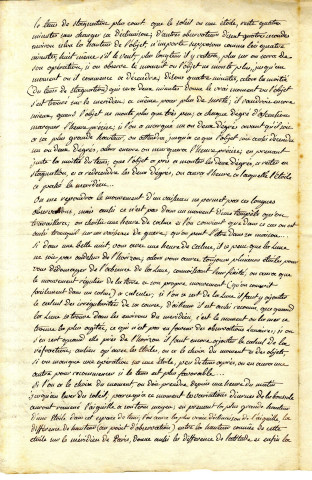 le tems de stagnation plus court que le soleil ou une étoile, reste quatre
minutes sans changer sa déclinaison; d'autre observateur dans quatre secondes
environ selon la hauteur de l'objet n'importe supposons comme les quatre
minutes, huit même s'il le veut, plus longtems il y restera, plus on en aura de
son opération, si on observe le moment où l'objet ne monte plus, jusqu'au
moment où il commence à descendre; disons quatre minutes, alors la moitié
(du tems de stagnation) qui sera deux minutes donne le vrai moment où l'objet
s'est trouvé sur le méridien; et même, pour plus de sureté, il vaudroit encore
mieux, quand l'objet ne monte plus que très peu, à chaque degré d'ascension
marquer l'heure précise; si on a marqué un ou deux degrés avant qu'il soit
à sa plus grande hauteur, on attendra jusqu'à ce que l'objet soit aussi descendu
un ou deux degrés, alors encore on marquera l'heure précise; en prenant
juste la moitié du tems que l'objet a pris à monter les deux degrés, à rester en
stagnation, et à redescendre les deux degrés, on aura l'heure à laquelle l'étoile
a passé le méridien.
On me repondra le mouvement d'un vaisseau ne permet pas ces longues
observations, mais aussi ce n'est pas dans un moment d'une tempête qu'on
travaillera; on choisit une heure de calme et l'on convient que dans ce cas on est
aussi tranquil sur un vaisseau de guerre, qu'on peut l'être dans sa maison.
Si dans une belle nuit, vous avez une heure de calme, il se peut que la lune
ne soit pas au dessus de l'horizon, alors vous aurez toujours plusieurs étoiles pour
vous dédommager de l'absence de la lune,
mouvement régulier de la terre ou son propre mouvement (qu'on connoit
facilement dans un calme) à calculer; si l'on se sert de la lune il faut y ajouter
le calcul des irrégularités de sa course,
la lune se trouve dans les environs du méridien, c'est le moment où la mer se
trouve la plus agitée, ce qui n'est pas en faveur des observations lunaires; si on
s'en sert quand elle près de l'horizon il faut encore ajouter le calcul de la
réfraction, aulieu qu'avec les étoiles, on a le choix du moment et des objets.
Si on manque une opération sur une étoile, peu de tems après, on en aura une
autre pour recommencer si le tems est plus favorable...
Si l'on a le choix du moment on doit prendre, depuis une heure du matin
jusqu'au lever du soleil, parceque ce moment les variations diurnes de la boussole
auront ramené l'aiguille à son terme moyen; en prenant la plus grande hauteur
d'une étoile dans cet espace de tems, l'on aura la plus vraie déclinaison de l'aiguille, la
différence de hauteur (au point d'observation) entre la hauteur connue de cette
étoile sur le méridien de Paris, donne aussi la différence de latitude, et enfin la